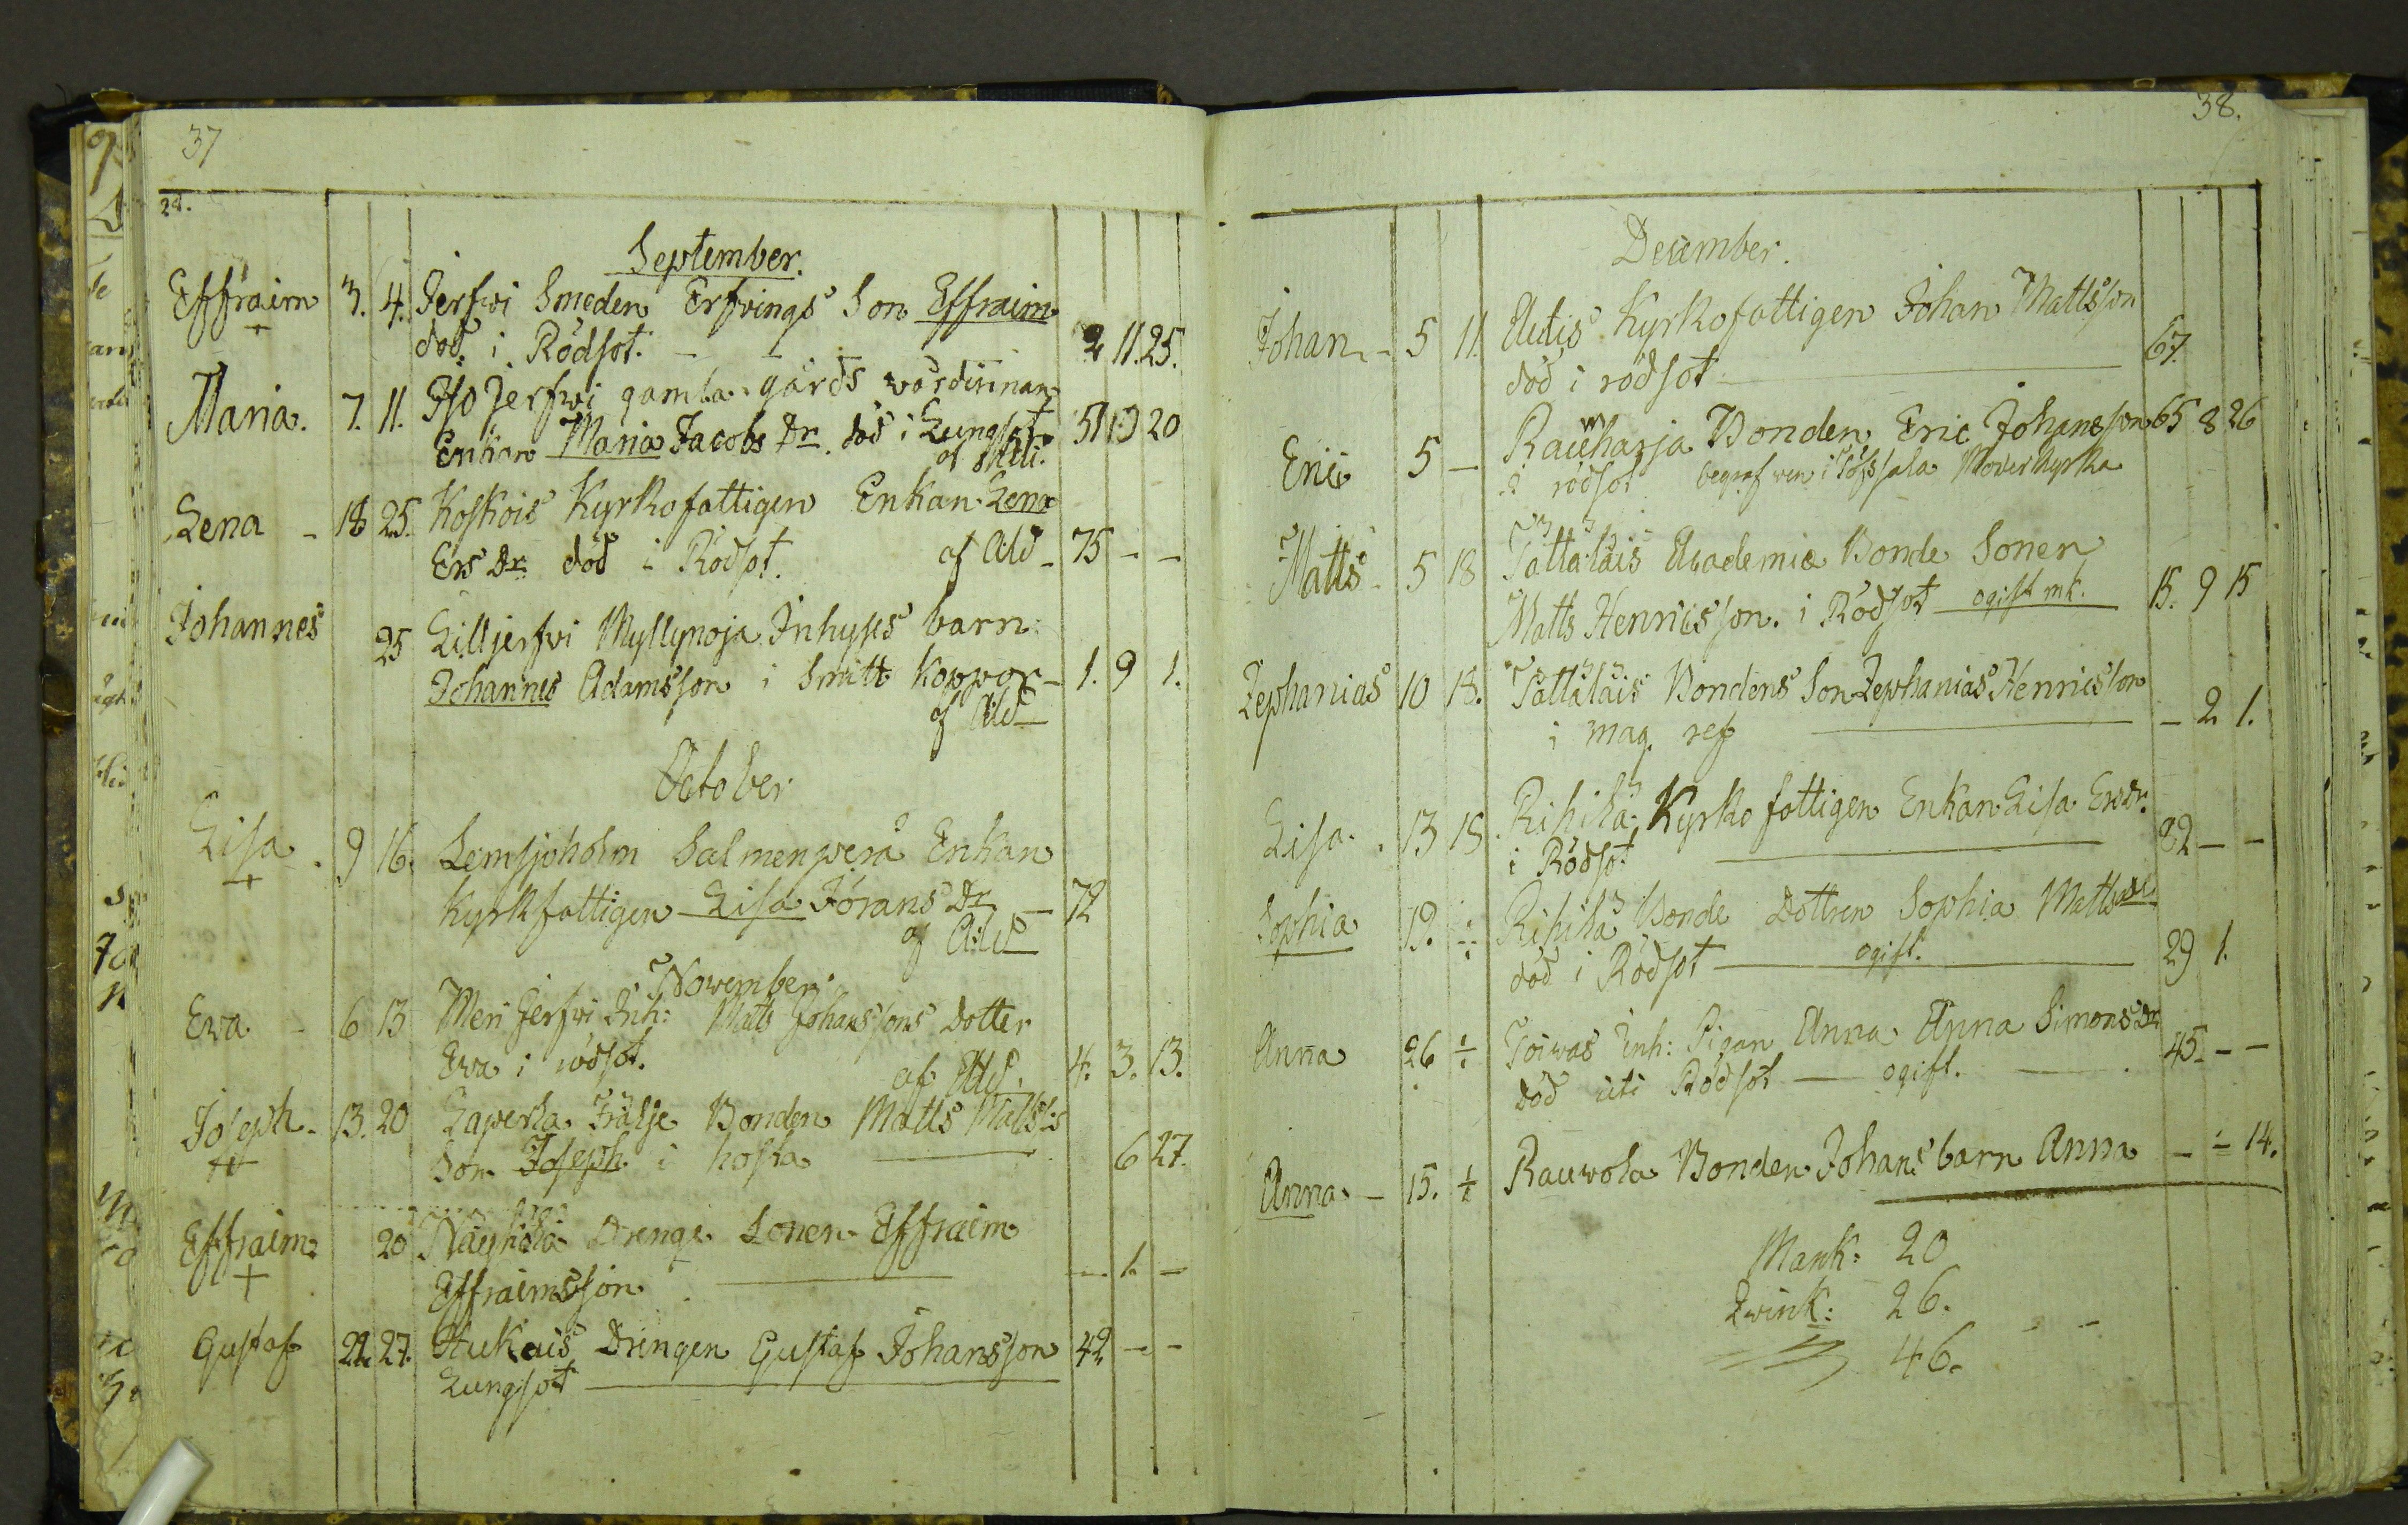 37
24.
September.
Effraim 3. 4. Jerfwi Smeden Erfvings Son Effraim
död. i Rödsot. - - 2 11. 25.
Maria. 7. 11. Iso Jerfwi gamla gårds wärdinnan
Enkan Maria Jacobs Dr. död i Lungsot 51 10 20
af åld.
Lena - 18 25. Koskois Kyrkofattigen Enkan Lena
Ers Dr död i Rödsot. af Åld - 75 - -
Johannes 25 Lilljerfvi Myllynoja Inhyses barn
Johannes Adamsson i Smitt Koppor - 1. 9 1.
af Åld
October
Lisa. 9 16. Lemsjoholm Salmenperä Enkan
Kyrkfattigen Lisa Jörans Dr - 72
af Åld
November.
Ewa - 6 13 Meri Jerfvi Inh: Matts Johanssons dotter
Ewa i rödsot. af Åld. 4. 3. 13.
Joseph - 13. 20 Laperla Frälse Bonden Matts Matss:s
Son Joseph i hosta 6 27.
Effraim 20 Drengs Sonen Effraim
Effraimsson - 1. -
Gustaf 21. 27. Hukais Drengen Gustaf Johansson 42 - -
Lungsot
38.
December.
Johan - 5 11. Autis Kyrkofattigen Johan Mattsson
död i rödsot 67.
Eric 5 - Rauwharja Bonden Eric Johansson 65 8 26
i rödsot begrafwen i Töfsala Moderkyrka
Matts - 5 18 Tättäläis Academie Bonde Sonen
Matts Henricsson. i Rödsot ogift mk. 15. 9 15
Zephanias 10 18. Tättäläis Bondens Son Zephanias Henricsson
i mag. ref - 2 1.
Lisa. . 13 18 Rihilä Kyrko fattigen Enkan Lisa Ersdr.
i Rödsot 82 - -
Sophia 19. ÷ Rihilä Bonde Dottren Sophia Mattsdr
död i Rödsot ogift. 29 1.
Anna 26 ÷ Toiwas Inh: Pigan Anna Anna Simonsdr
död uti Rödsot - ogift. 45. - -
Anna - 15. ÷ Rauwola Bonden Johans barn Anna - - 14.
Mank: 20
Qwink: 26.
46.